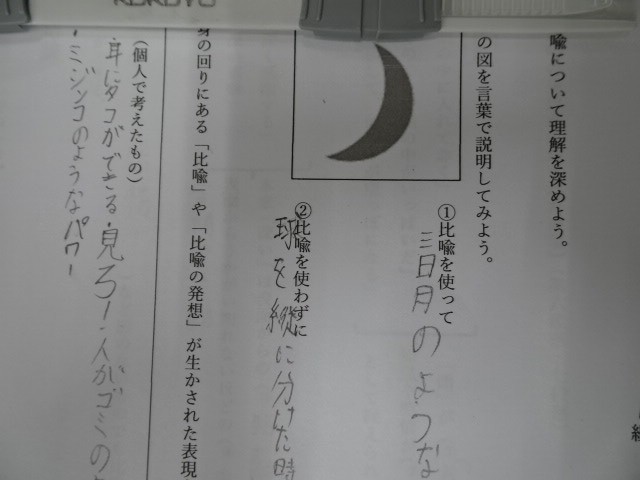 KOKUYO
喩について理解を深めよう。
の図を言葉で説明してみよう。
①比喩を使って
三日月のような
②比喩を使わずに
球を縦に分けた時
身の回りにある「比喩」や「比喩の発想」が生かされた表現
(個人で考えたもの)
耳にタコができる・見ろ!人がゴミの
・ミジンコのようなパワー